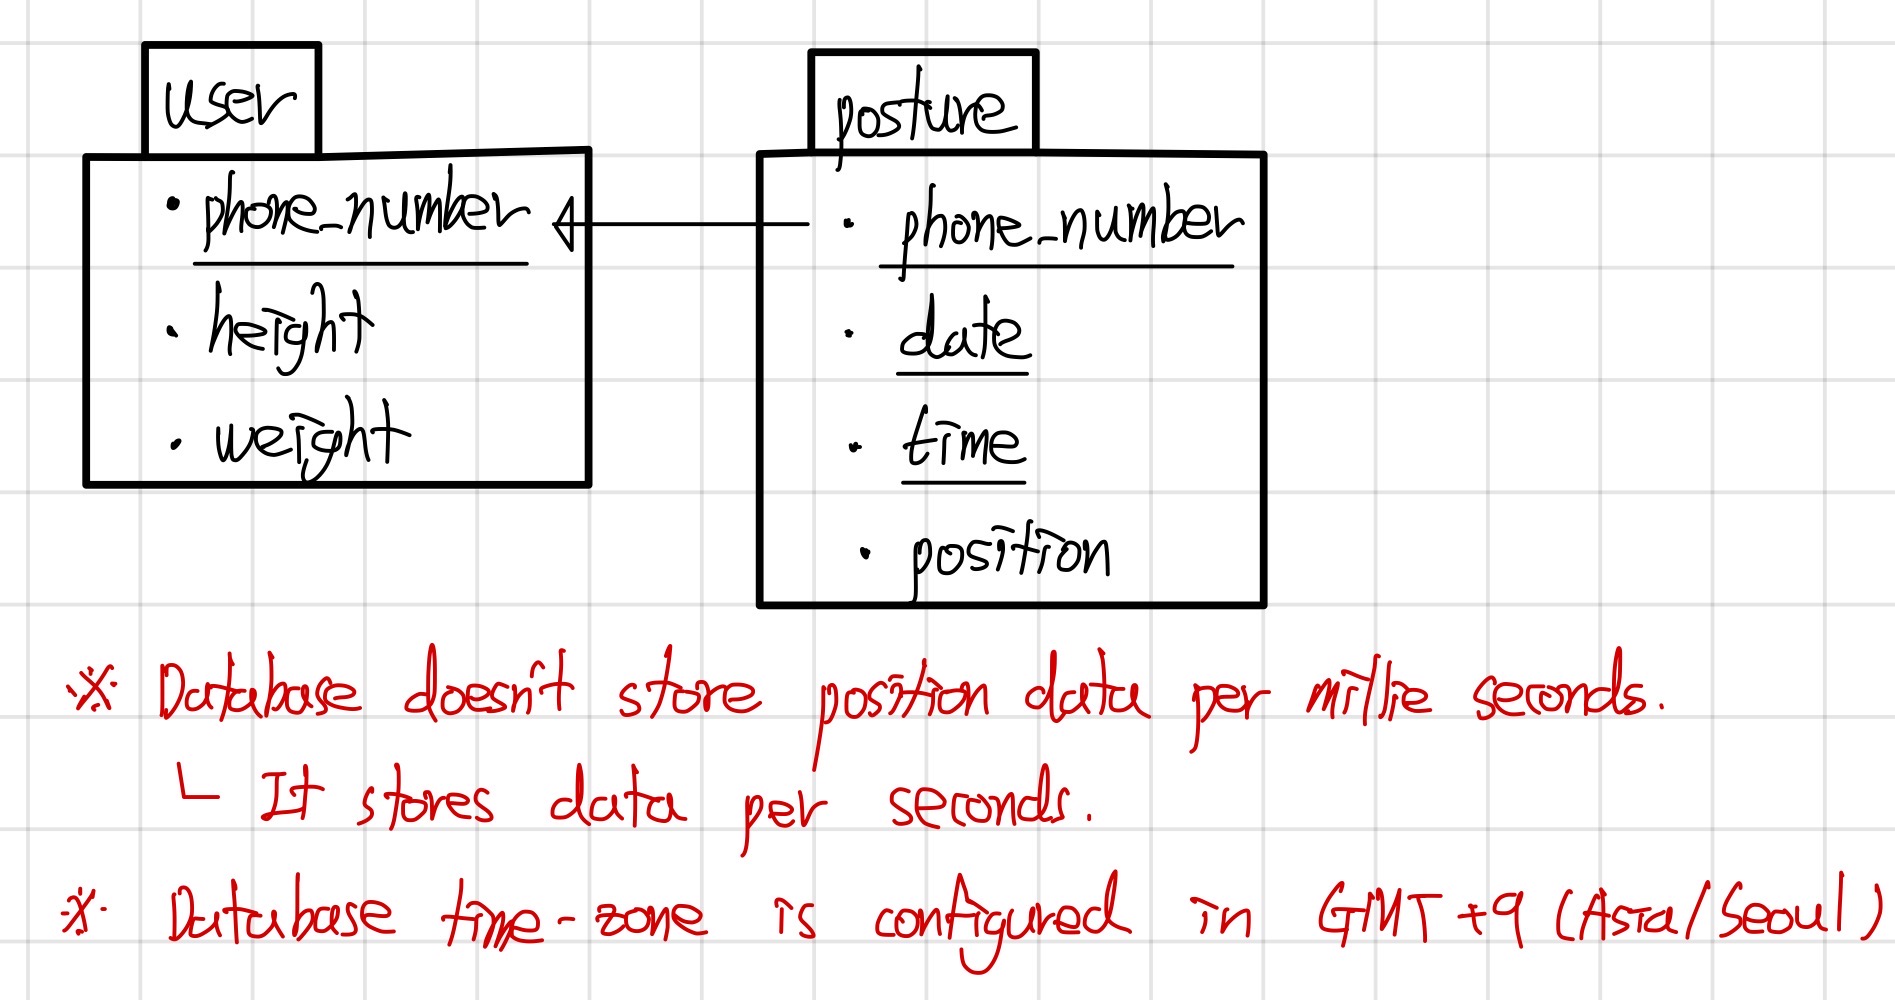 user
• phone_number
• height
• weight
posture
• phone_number
• date
• time
• position
※ Database doesn't store position data per millie seconds.
└ It stores data per seconds.
※ Database time-zone is configured in GMT+9 (Asia/Seoul)